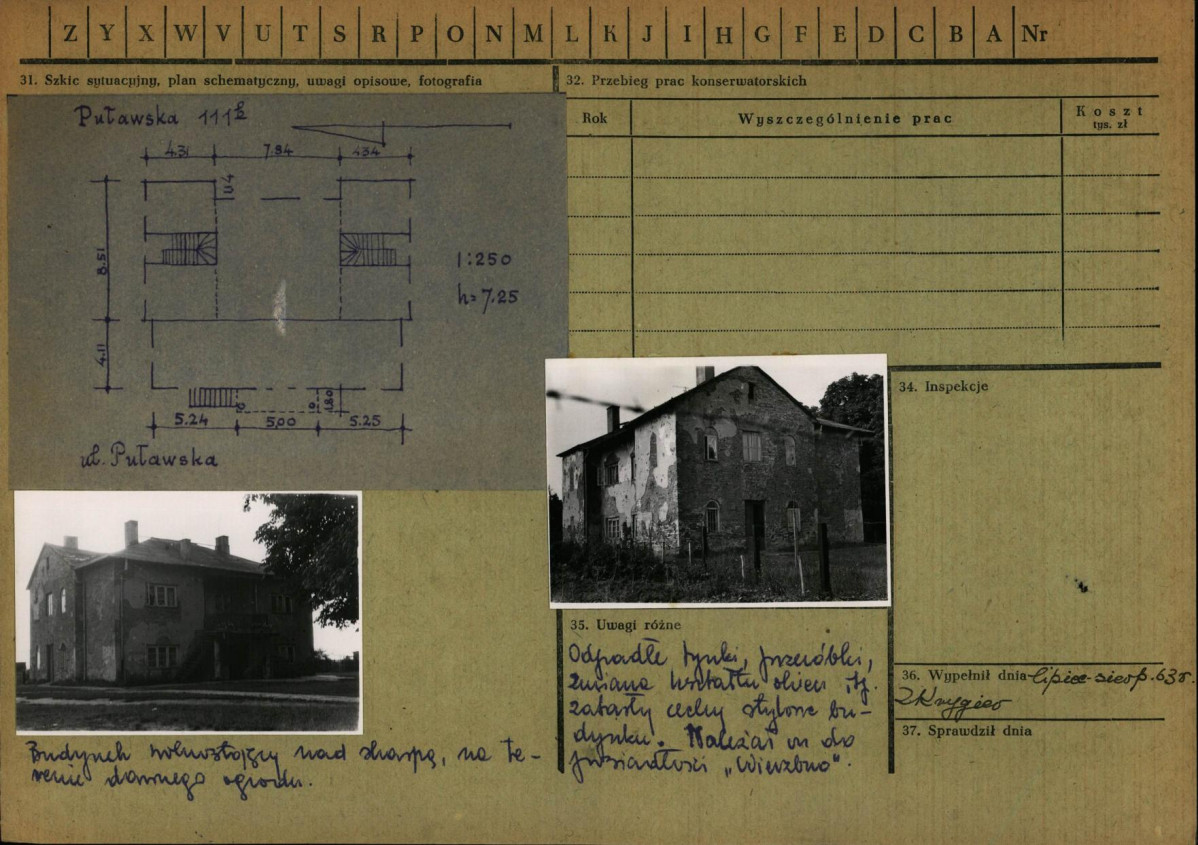 Z Y X W V U T S R P O N M L K J I H G F E D C B A Nr
31. Szkic sytuacyjny, plan schematyczny, uwagi opisowe, fotografia
Puławska 111b
4.31 7.84 4.34
1.04
8.51
1:250
h=7.25
4.11
1.80
5.24 5,00 5.25
ul. Puławska
Budynek wolnostojący nad skarpą, na te-
renie dawnego ogrodu.
32. Przebieg prac konserwatorskich
Rok Wyszczególnienie prac Koszt
tys. zł
34. Inspekcje
35. Uwagi różne
Odpadłe tynki, przeróbki,
zmiana kształtu okien, tj.
zatarły cechy stylowe bu-
dynku. Należał on do
posiadłości „Wierzbno".
36. Wypełnił dnia lipiec-sierp. 63r.
ZKrygier
37. Sprawdził dnia